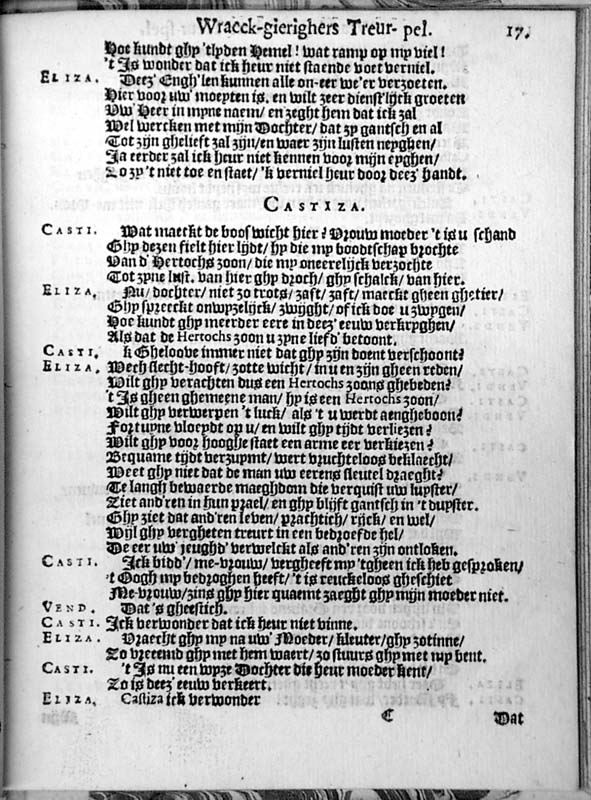 Wraeck-gierighers Treur- pel. 17.
Hoe kundt ghy 'tlyden Hemel! wat ramp op my viel!
't Js wonder dat ick heur niet staende voet verniel.
ELIZA. Deez' Engh'len kunnen alle on-eer we'er verzoeten.
Hier voor uw' moeyten is. en wilt zeer dienst'lijck groeten
Uw' Heer in myne naem/ en zeght hem dat ick zal
Wel wercken met mijn Dochter/ dat zy gantsch en al
Tot zijn ghelieft zal zijn/ en waer zijn lusten neyghen/
Ja eerder zal ick heur niet kennen voor mijn eyghen/
Zo zy 't niet toe en staet/ 'k verniel heur door deez' handt.
CASTIZA.
CASTI. Wat maeckt de boos wicht hier? Vrouw moeder 't is u schand
Ghy dezen fielt hier lijdt/ hy die my boodtschap brochte
Van d' Hertochs zoon/ die my oneerelijck verzochte
Tot zyne lust. van hier ghy droch/ ghy schalck/ van hier.
ELIZA. Nu/ dochter/ niet zo trots/ zaft/ zaft/ maeckt gheen ghetier/
Ghy spreeckt onwyzelijck/ zwijght/ of ick doe u zwygen/
Hoe kundt ghy meerder eere in deez' eeuw verkryghen/
Als dat de Hertochs zoon u zyne lief d' betoont.
CASTI. k Gheloove immer niet dat ghy zijn doent verschoont?
ELIZA. Wech slecht-hooft/ zotte wicht/ in u en zijn gheen reden/
Wilt ghy verachten dus een Hertochs zoons ghebeden?
't Js gheen ghemeene man/ hy is een Hertochs zoon/
Wilt ghy verwerpen 't luck/ als 't u werdt aengheboon?
Fortuyne vloeydt op u/ en wilt ghy tijdt verliezen?
Wilt ghy voor hooghe staet een arme eer verkiezen?
Bequame tijdt verzuymt/ wert vruchteloos beklaecht/
Weet ghy niet dat de man uw eerens sleutel draeght?
Te langh bewaerde maeghdom die verquist uw luyster/
Ziet and'ren in hun prael/ en ghy blijft gantsch in 't duyster.
Ghy ziet dat and'ren leven/ prachtich/ rijck/ en wel/
Wijl ghy vergheten treurt in een bedroefde hel/
De eer uw' jeughd' verwelckt als and'ren zijn ontloken.
CASTI. Jck bidd'/ me-vrouw/ vergheeft my 'tgheen ick heb gesproken/
't Oogh my bedroghen heeft/ 't is reuckeloos gheschiet
Me-vrouw/ zins ghy hier quaemt zaeght ghy mijn moeder niet.
VEND. Dat 's gheestich.
CASTI. Jck verwonder dat ick heur niet vinne.
ELIZA. Vraecht ghy my na uw' Moeder/ kleuter/ ghy zotinne/
Zo vreemd ghy met hem waert/ zo stuurs ghy met my bent.
CASTI. 't Js nu een wyze Dochter die heur moeder kent/
Zo is deez' eeuw verkeert.
ELIZA. Castiza ick verwonder
C Dat